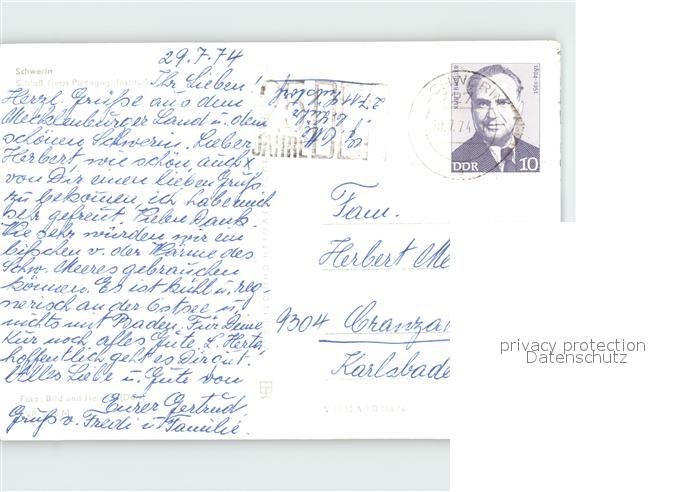 29.7.74
Schwerin
Schloß (jetzt Pädagog. Institut)
Ihr Lieben!
Herzl. Grüße aus dem
Mecklenburger Land u. dem
schönen Schwerin. Lieber
Herbert wie schön, auch
von Dir einen lieben Gruß
zu bekommen, ich habe mich
sehr gefreut. Vielen Dank.
Wie sehr würden wir ein
bißchen v. der Wärme des
Schw. Meeres gebrauchen
können. Es ist kühl u. reg-
nerisch an der Ostsee u.
nichts mit Baden. Für Deine
Kur noch alles Gute, L. Herta,
hoffentlich geht es Dir gut.
Alles Liebe u. Gute von
Eurer Gertrud.
Gruß v. Fredi u Familie.
Foto: Bild und Heimat
JAHRE DDR
SCHWERIN
7.74
1894-1951
DDR
10
Fam.
Herbert Me
9304 Cranza
Karlsbade
privacy protection
Datenschutz